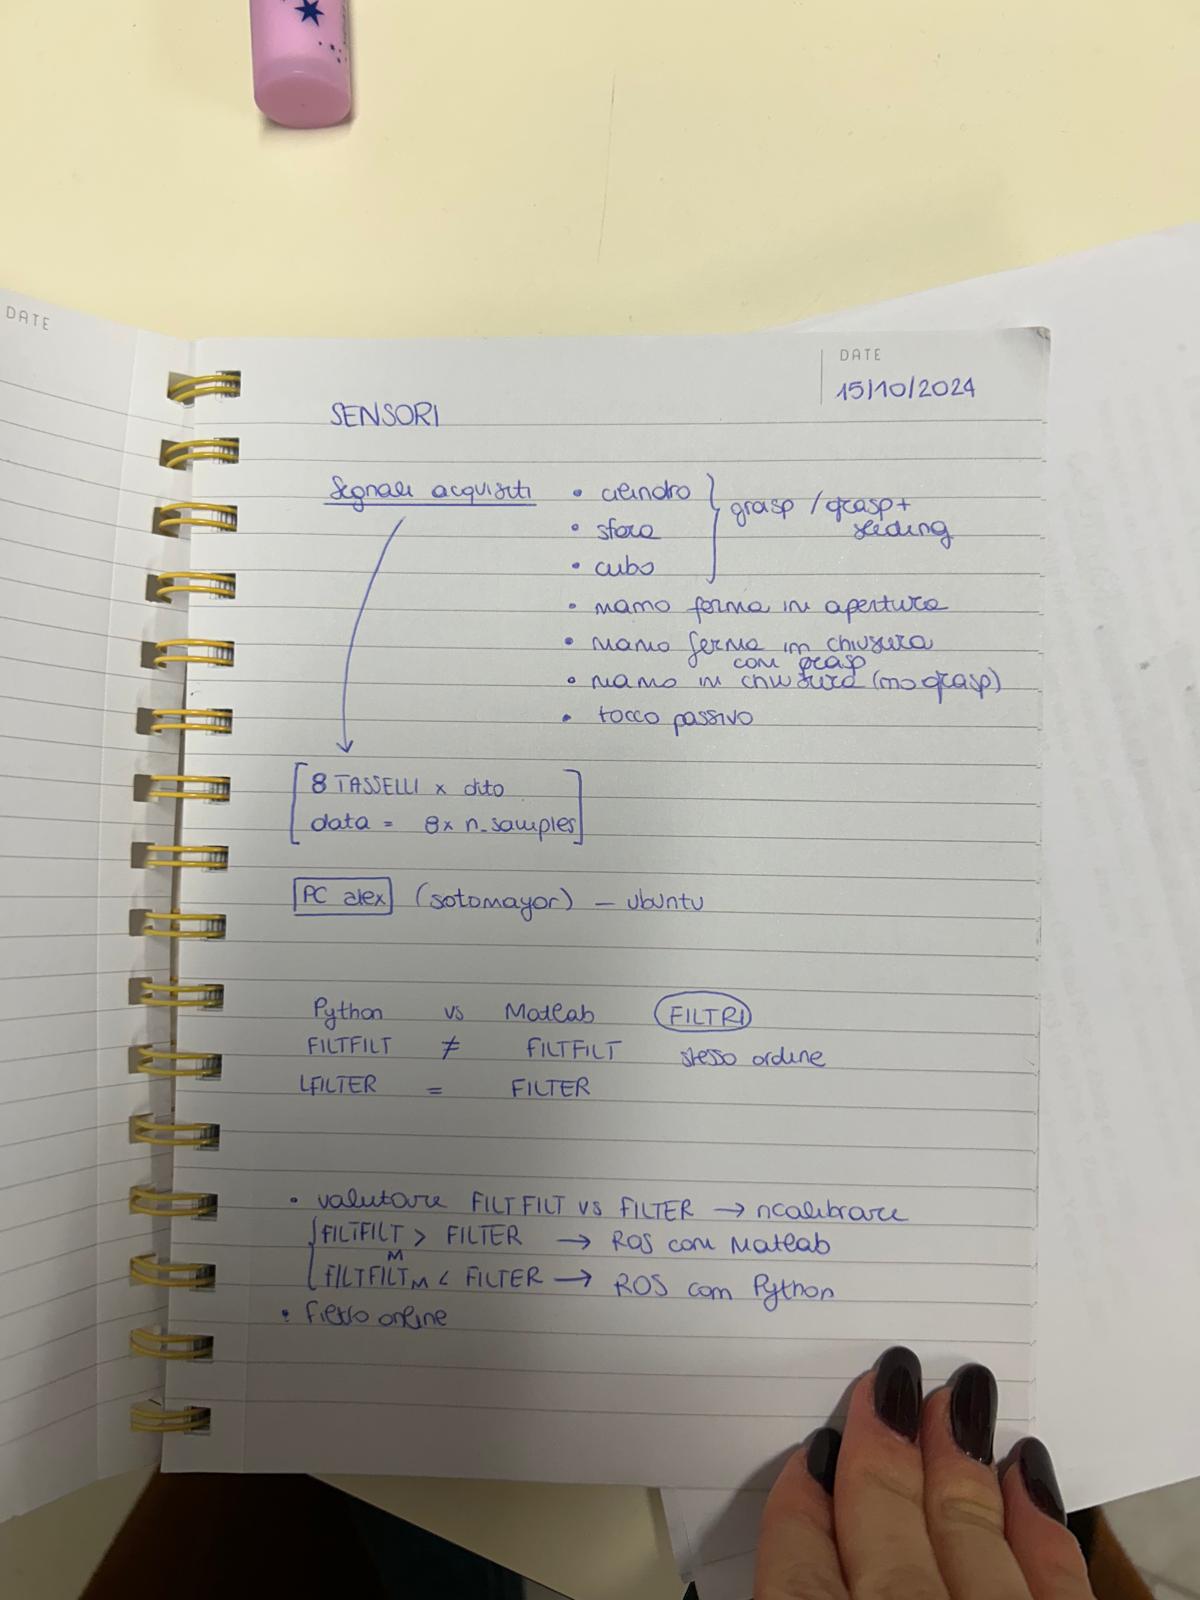 DATE
DATE
15/10/2024
SENSORI
Segnali acquisiti
• cilindro
• sfera
• cubo
grasp / grasp+
sliding
• mano ferma in apertura
• mano ferma in chiusura
con grasp
• mano in chiusura (no grasp)
• tocco passivo
8 TASSELLI x dito
data = 8x n_samples
PC alex (sotomayor) — ubuntu
Python vs Matlab FILTRI
FILTFILT ≠ FILTFILT stesso ordine
LFILTER = FILTER
• valutare FILTFILT vs FILTER → ricalibrare
FILTFILT M > FILTER → ROS con Matlab
FILTFILT M < FILTER → ROS con Python
• filtro online